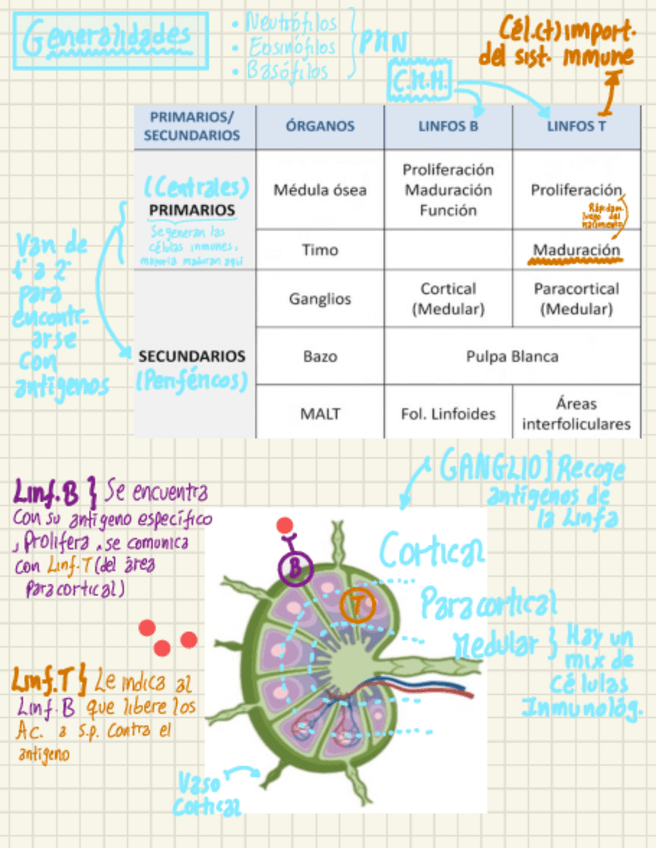 Generalidades
• Neutrófilos
• Eosinófilos
• Basófilos
PMN
Cél.(t) import.
del sist. mmune
C.M.H.
PRIMARIOS/
SECUNDARIOS
ÓRGANOS
LINFOS B
LINFOS T
(Centrales)
PRIMARIOS
Se generan las
células inmunes,
mayoría maduran aquí
Médula ósea
Proliferación
Maduración
Función
Proliferación
Rápidam.
luego del
nacimiento
Timo
Maduración
Van de
1° a 2°
para
encontr-
arse
con
antígenos
SECUNDARIOS
(Periféricos)
Ganglios
Cortical
(Medular)
Paracortical
(Medular)
Bazo
Pulpa Blanca
MALT
Fol. Linfoides
Áreas
interfoliculares
GANGLIO} Recoge
antígenos de
la Linfa
Linf.B } Se encuentra
con su antígeno específico
, Prolifera, se comunica
con Linf.T (del área
Paracortical)
B
T
Cortical
Paracortical
Medular } Hay un
mix de
Células
Inmunológ.
Linf.T } Le indica al
Linf.B que libere los
Ac. a s.p. contra el
antígeno
Vaso
Cortical